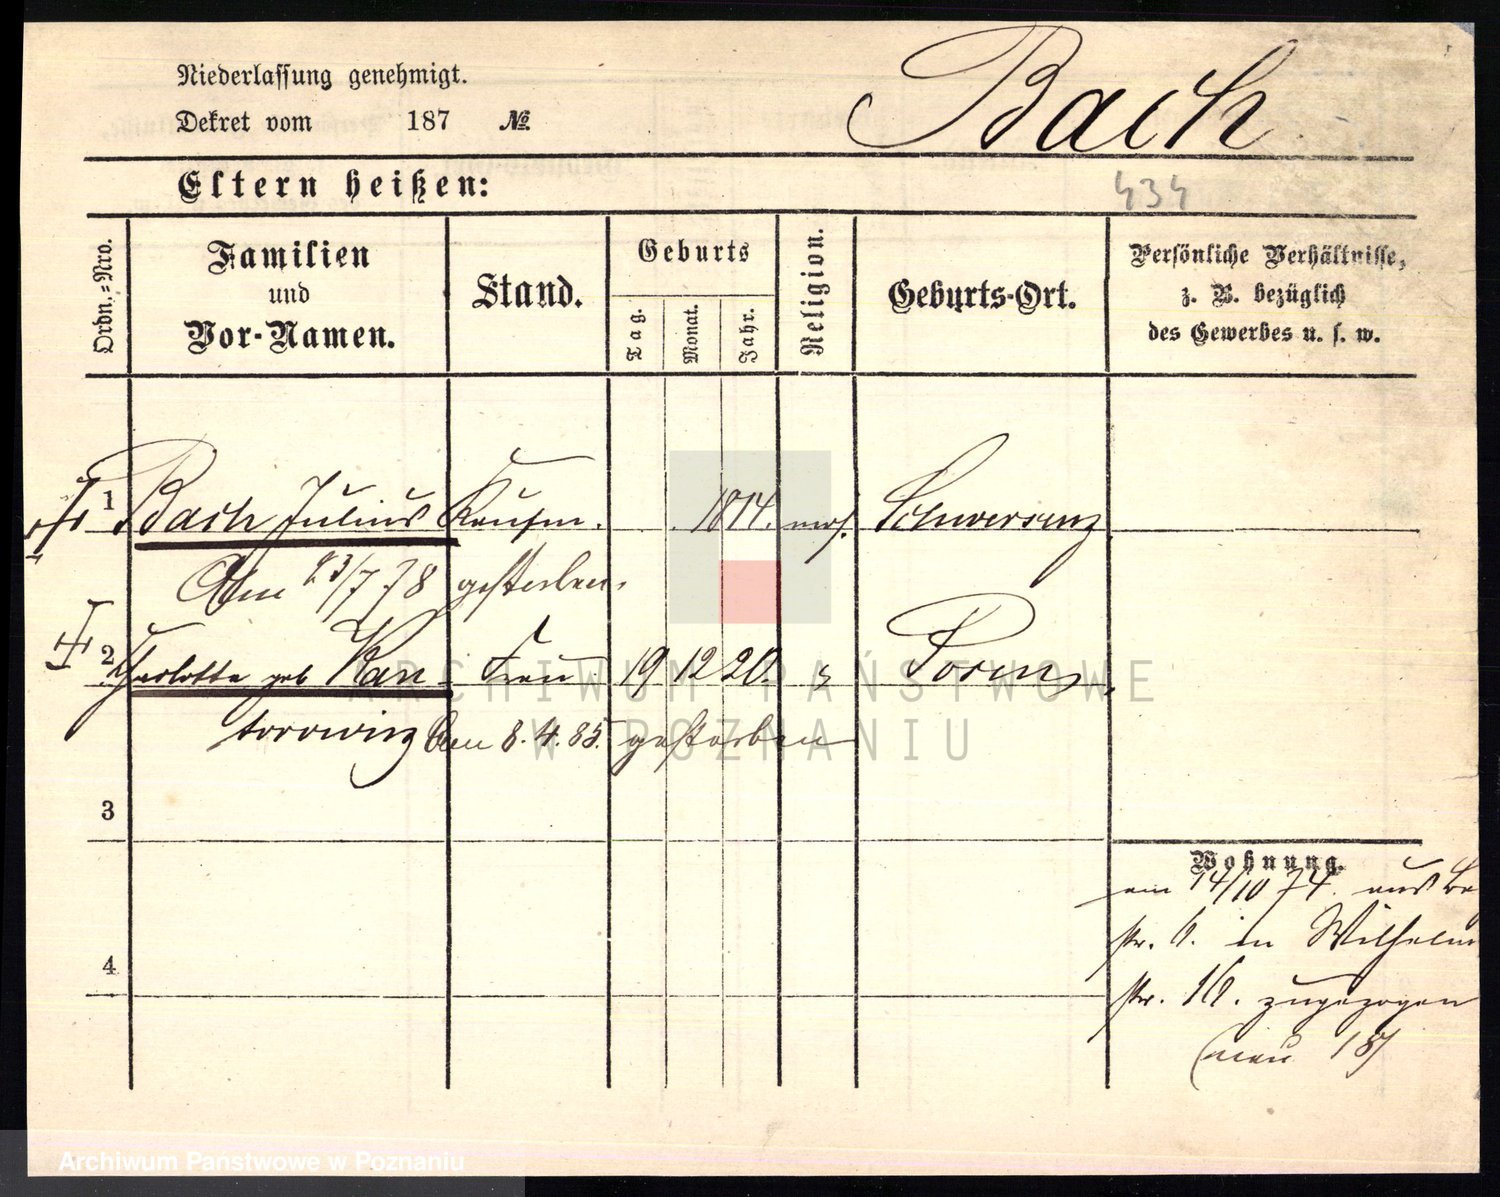 Niederlassung genehmigt.
Dekret vom 187 №
Bach
Eltern heißen:
434
Ordn.=Nro.
Familien
und
Vor-Namen.
Stand.
Geburts
Tag.
Monat.
Jahr.
Religion.
Geburts-Ort.
Persönliche Verhältnisse,
z. B. bezüglich
des Gewerbes u. s. w.
1 Bach Julius Kaufm. 1814. mos. Schwersenz
Am 23/7 78 gestorben.
2 Charlotte geb Kan- Frau 19 12 20. " Posen
torowicz Am 8.4.85. gestorben
3
Wohnung.
am 14/10 74. aus
str. 6. in Wilhelm
4
str. 16. zugezogen
(neu 18)
ARCHIWUM PAŃSTWOWE
W POZNANIU
Archiwum Panstwowe w Poznaniu